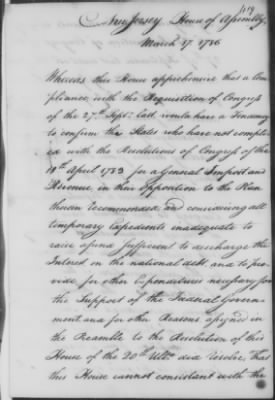 419
New Jersey House of Assembly
March 17 1786
Whereas this House apprehensive that a Com
pliance with the Requisition of Congress
of the 27th Sept. last would have a Tendency
to confirm the States who have not complied
with the Resolutions of Congress of the
18th April 1783 for a General Impost and
Revenue in their Opposition to the Plan
therein recommended and considering all
temporary Expedients inadequate to
raise a fund sufficient to discharge the
Interest on the national debt and to pro
vide for other Expenditures necessary for
the Support of the Fœderal Govern
ment and for other Reasons assigned in
the Preamble to the Resolution of this
House of the 20th Ulto. did resolve, that
this House cannot consistant with the